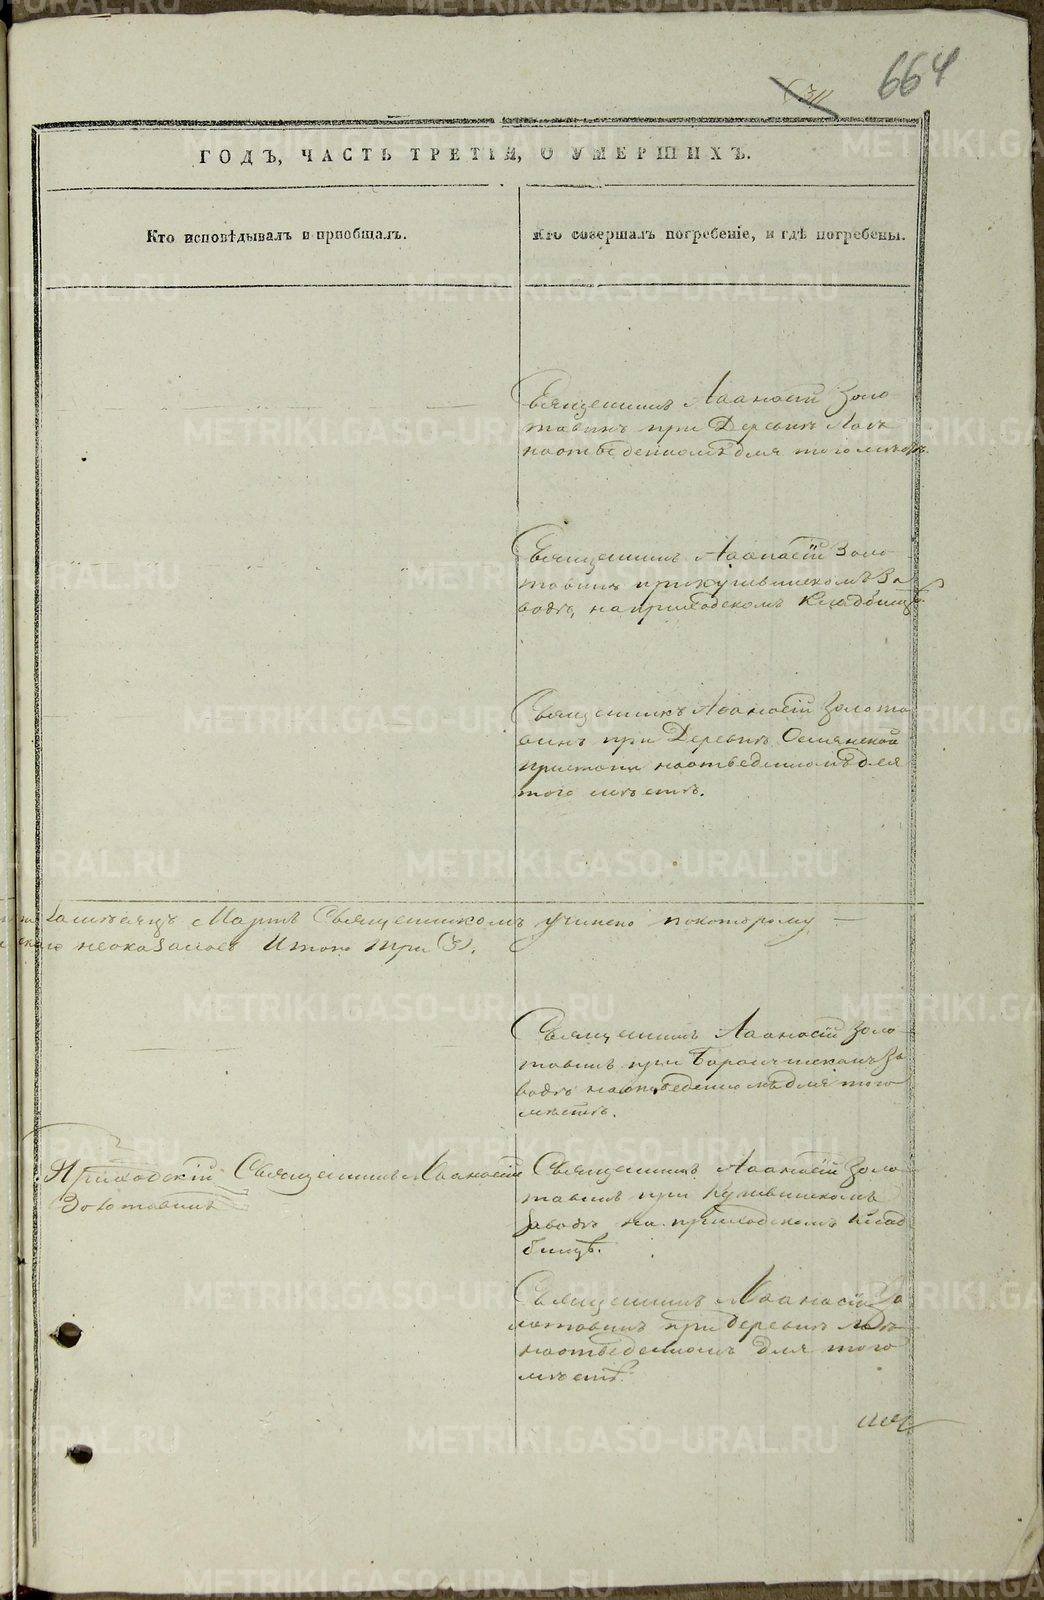 664
ГОДЪ, ЧАСТЬ ТРЕТІЯ, О УМЕРШИХЪ.
Кто исповѣдывалъ и пріобщалъ.
Кто совершалъ погребеніе, и гдѣ погребены.
Священникъ Аѳанасій Золо
тавинъ при Деревнѣ Лаѣ
на отведенномъ для того мѣстѣ.
Священникъ Аѳанасій Золо
тавинъ при Кушвинскомъ За
водѣ, на приходскомъ Кладбищѣ.
Священникъ Аѳанасій Золота
винъ при Деревнѣ Ослянской
пристани на отведенномъ для
того мѣстѣ.
За мѣсяцъ Мартъ Священникомъ учинено по которому
не оказалось Итого три (3).
Священникъ Аѳанасій Золо
тавинъ при Баранчинскомъ За
водѣ на отведенномъ для того
мѣстѣ.
Приходскій Священникъ Аѳанасій
Золотавинъ
Священникъ Аѳанасій Золо
тавинъ при Кушвинскомъ
заводѣ на приходскомъ Клад
бищѣ.
Священникъ Аѳанасій Зо
лотавинъ при деревнѣ Лаѣ
на отведенномъ для того
мѣстѣ.
METRIKI.GASO-URAL.RU